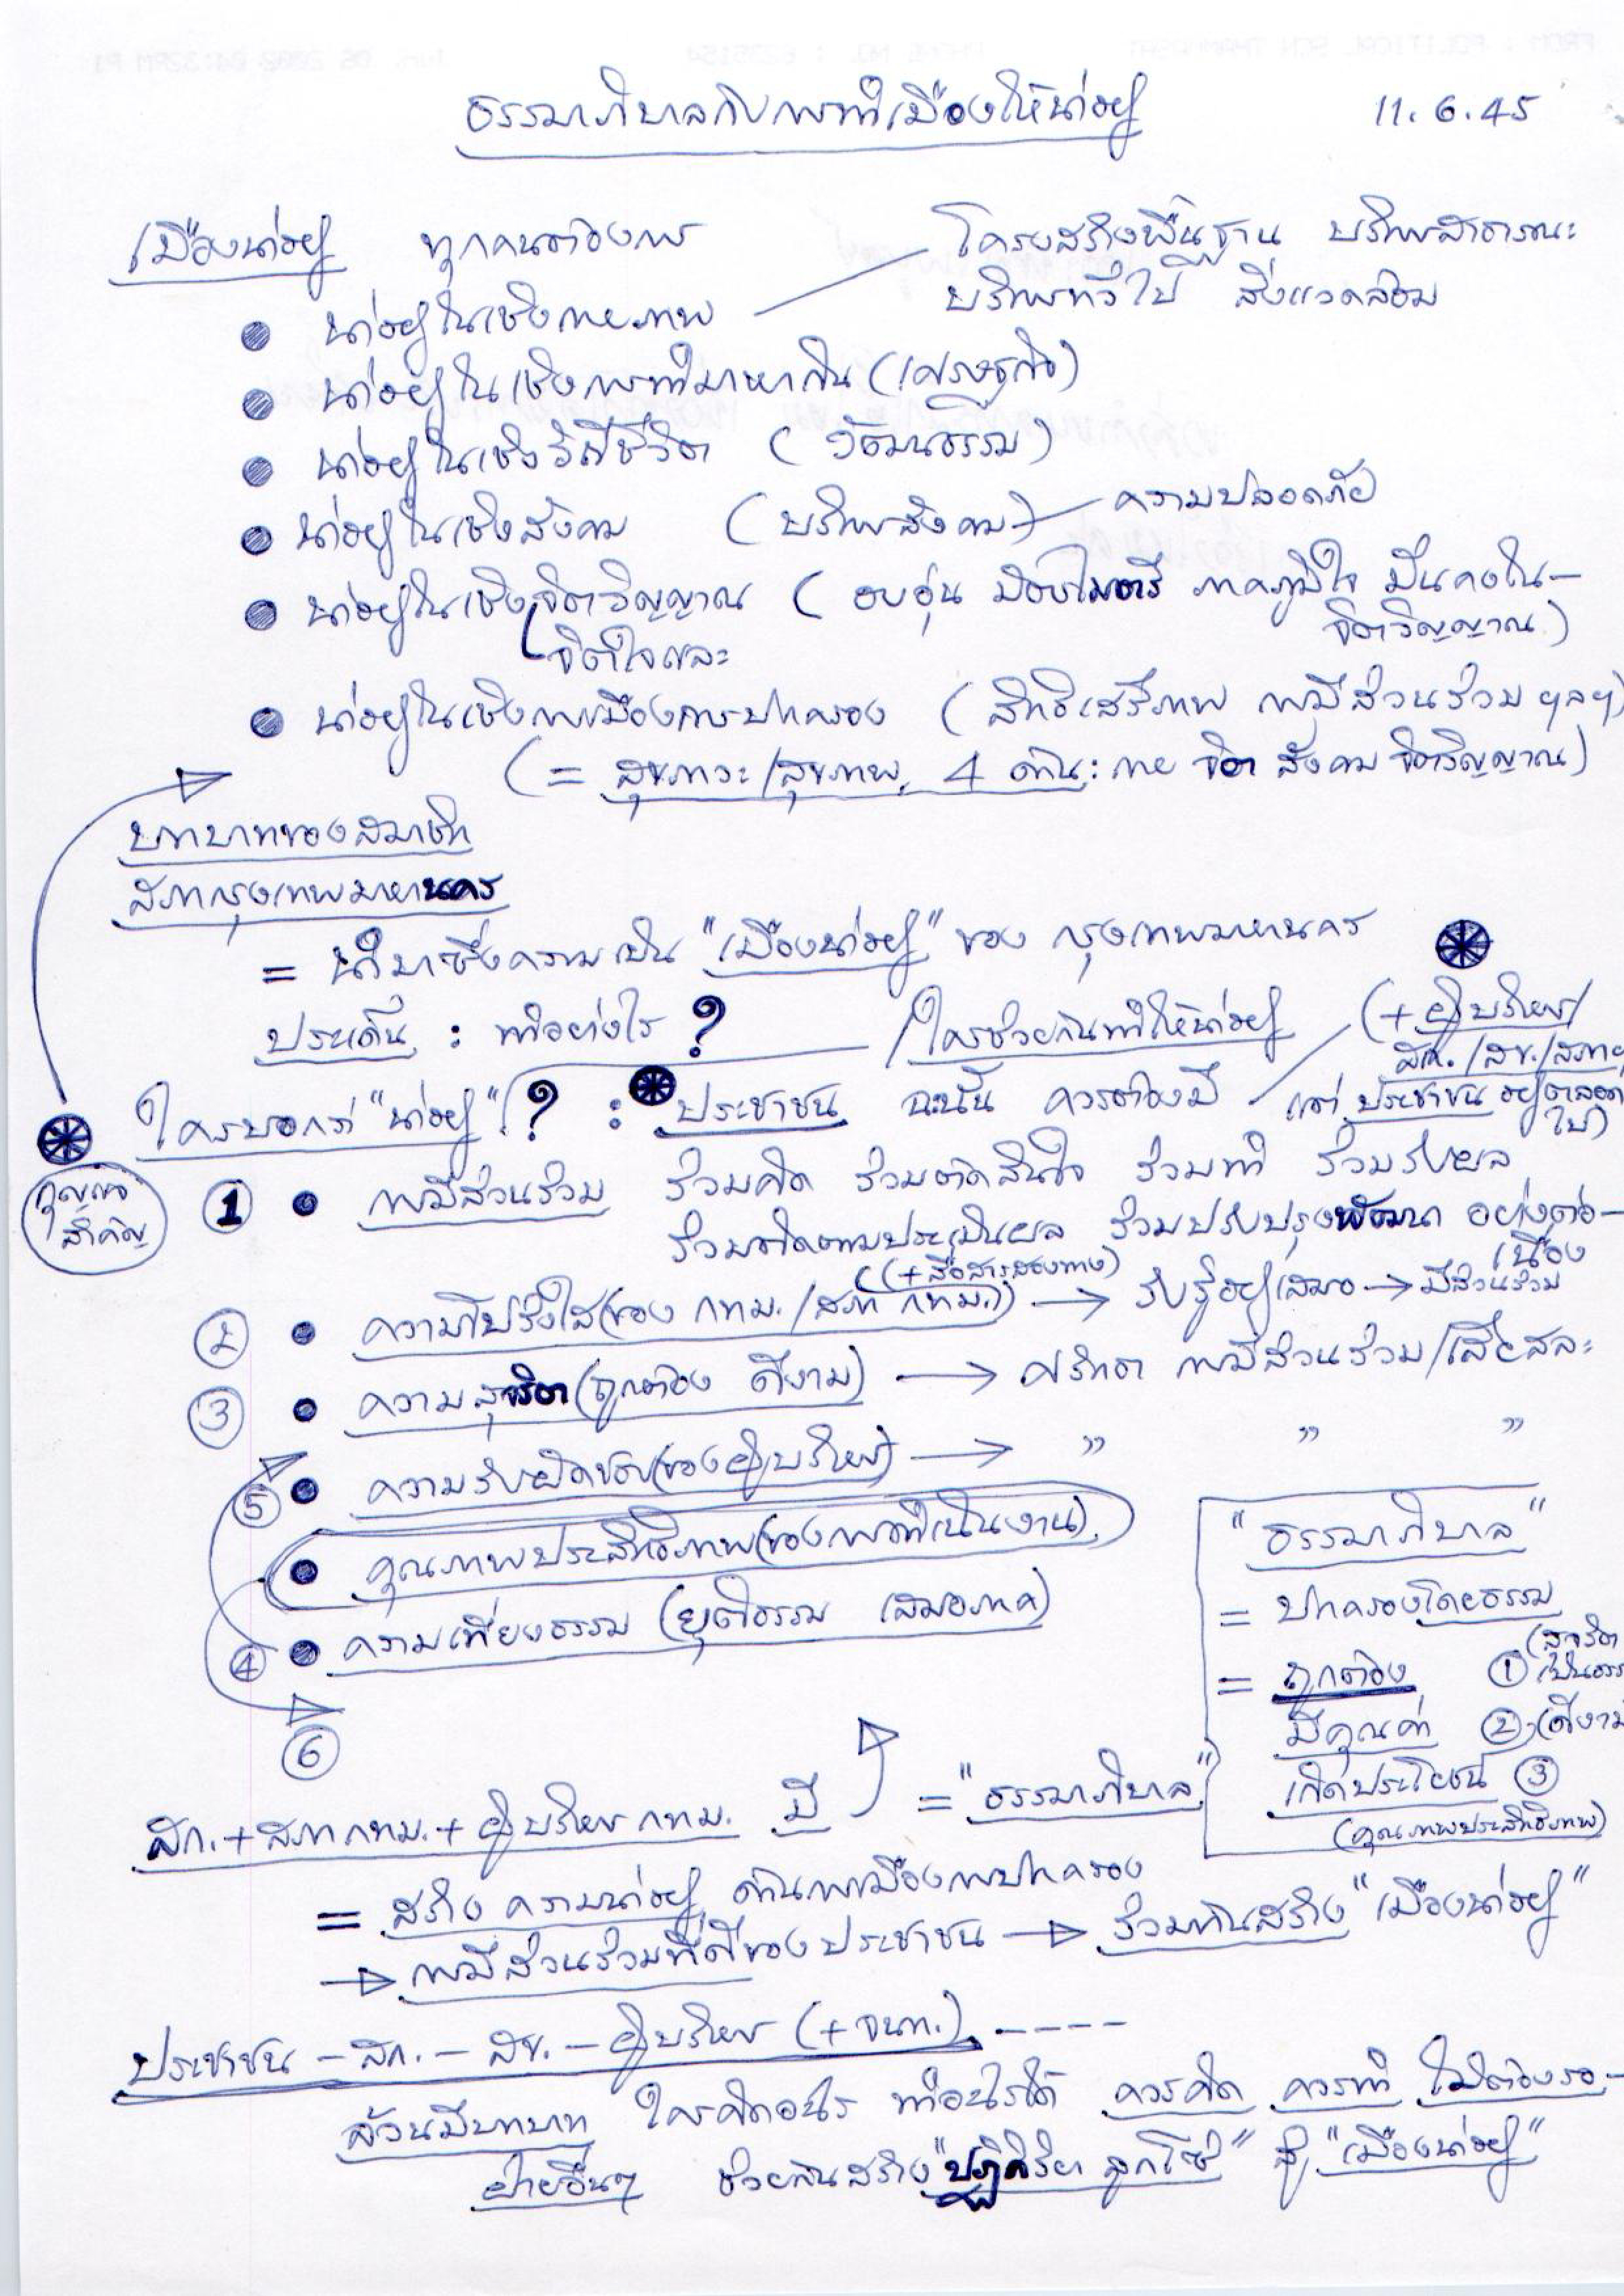 ธรรมาภิบาลกับการทำเมืองให้น่าอยู่ 11.6.45
เมืองน่าอยู่ ทุกคนต้องการ
โครงสร้างพื้นฐาน บริการสาธารณะ
บริการทั่วไป สิ่งแวดล้อม
● น่าอยู่ในเชิงกายภาพ
● น่าอยู่ในเชิงการทำมาหากิน (เศรษฐกิจ)
● น่าอยู่ในเชิงวิถีชีวิต (วัฒนธรรม)
● น่าอยู่ในเชิงสังคม (บริการสังคม) ความปลอดภัย
● น่าอยู่ในเชิงจิตวิญญาณ (อบอุ่น มีอัธยาศัยไมตรี ภาคภูมิใจ มั่นคงใน–
จิตวิญญาณ)
จิตใจและ
● น่าอยู่ในเชิงการเมืองการปกครอง (สิทธิเสรีภาพ การมีส่วนร่วม ฯลฯ)
(= สุขภาวะ/สุขภาพ 4 ด้าน: กาย จิต สังคม จิตวิญญาณ)
บทบาทของสมาชิก
สภากรุงเทพมหานคร
= นำมาซึ่งความเป็น "เมืองน่าอยู่" ของ กรุงเทพมหานคร
ประเด็น : ทำอย่างไร ? /ใครช่วยกันทำให้น่าอยู่ (+ ผู้บริหาร/
สก./สข./สภาฯ
ใครบอกว่า "น่าอยู่" ? : ประชาชน ฉะนั้น ควรต้องมี แต่ ประชาชน อยู่ตลอด
ไป)
กุญแจ
สำคัญ
① ● การมีส่วนร่วม ร่วมคิด ร่วมตัดสินใจ ร่วมทำ ร่วมรับผล
ร่วมติดตามประเมินผล ร่วมปรับปรุงพัฒนา อย่างต่อ–
เนื่อง
(+ สื่อสารสองทาง)
② ● ความโปร่งใส (ของ กทม./สภา กทม.) → รับรู้อยู่เสมอ → มีส่วนร่วม
③ ● ความสุจริต (ถูกต้อง ดีงาม) → ศรัทธา การมีส่วนร่วม/เสียสละ
⑤ ● ความรับผิดชอบ (ของผู้บริหาร) → " " "
● คุณภาพประสิทธิภาพ (ของการดำเนินงาน)
④ ● ความเที่ยงธรรม (ยุติธรรม เสมอภาค)
⑥
"ธรรมาภิบาล"
= ปกครองโดยธรรม
= ถูกต้อง ① (สุจริต
เป็นธรรม
มีคุณค่า ② (ดีงาม
เกิดประโยชน์ ③
(คุณภาพประสิทธิภาพ)
สก.+สภา กทม.+ผู้บริหาร กทม. มี = "ธรรมาภิบาล"
= สร้าง ความน่าอยู่ ด้านการเมืองการปกครอง
→ การมีส่วนร่วมที่ดีของประชาชน → ร่วมกันสร้าง "เมืองน่าอยู่"
ประชาชน – สก. – สข. – ผู้บริหาร (+ จนท.) -----
ล้วนมีบทบาท ใครคิดอะไร ทำอะไรได้ ควรคิด ควรทำ ไม่ต้องรอ–
ฝ่ายอื่นๆ ช่วยกันสร้าง "ปฏิกิริยา ลูกโซ่" สู่ "เมืองน่าอยู่"